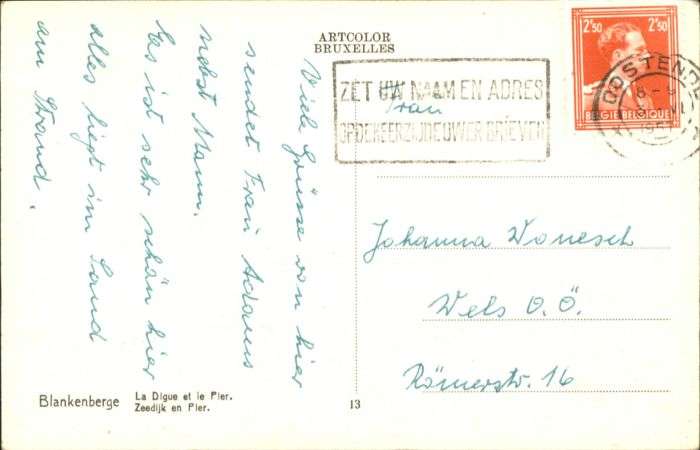 ARTCOLOR
BRUXELLES
Viele Grüsse von hier
sendet Frau Adams
nebst Mann.
Es ist sehr schön hier
alles liegt im Sand
am Strand.
ZET UW NAAM EN ADRES
OP DE KEERZIJDE UWER BRIEVEN
2F50 2F50
BELGIE-BELGIQUE
OOSTENDE
Frau
Johanna Wonesch
Wels O.Ö.
Römerstr. 16
Blankenberge La Digue et le Pier.
Zeedijk en Pier.
13